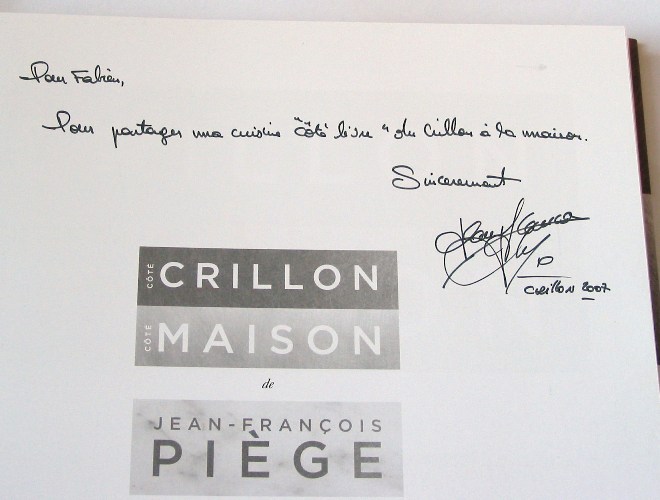 Pour Fabien,
Pour partager ma cuisine "côté livre" du Crillon à la maison.
Sincerement
Crillon 2007
CÔTÉ CRILLON
CÔTÉ MAISON
de
JEAN-FRANÇOIS
PIÈGE